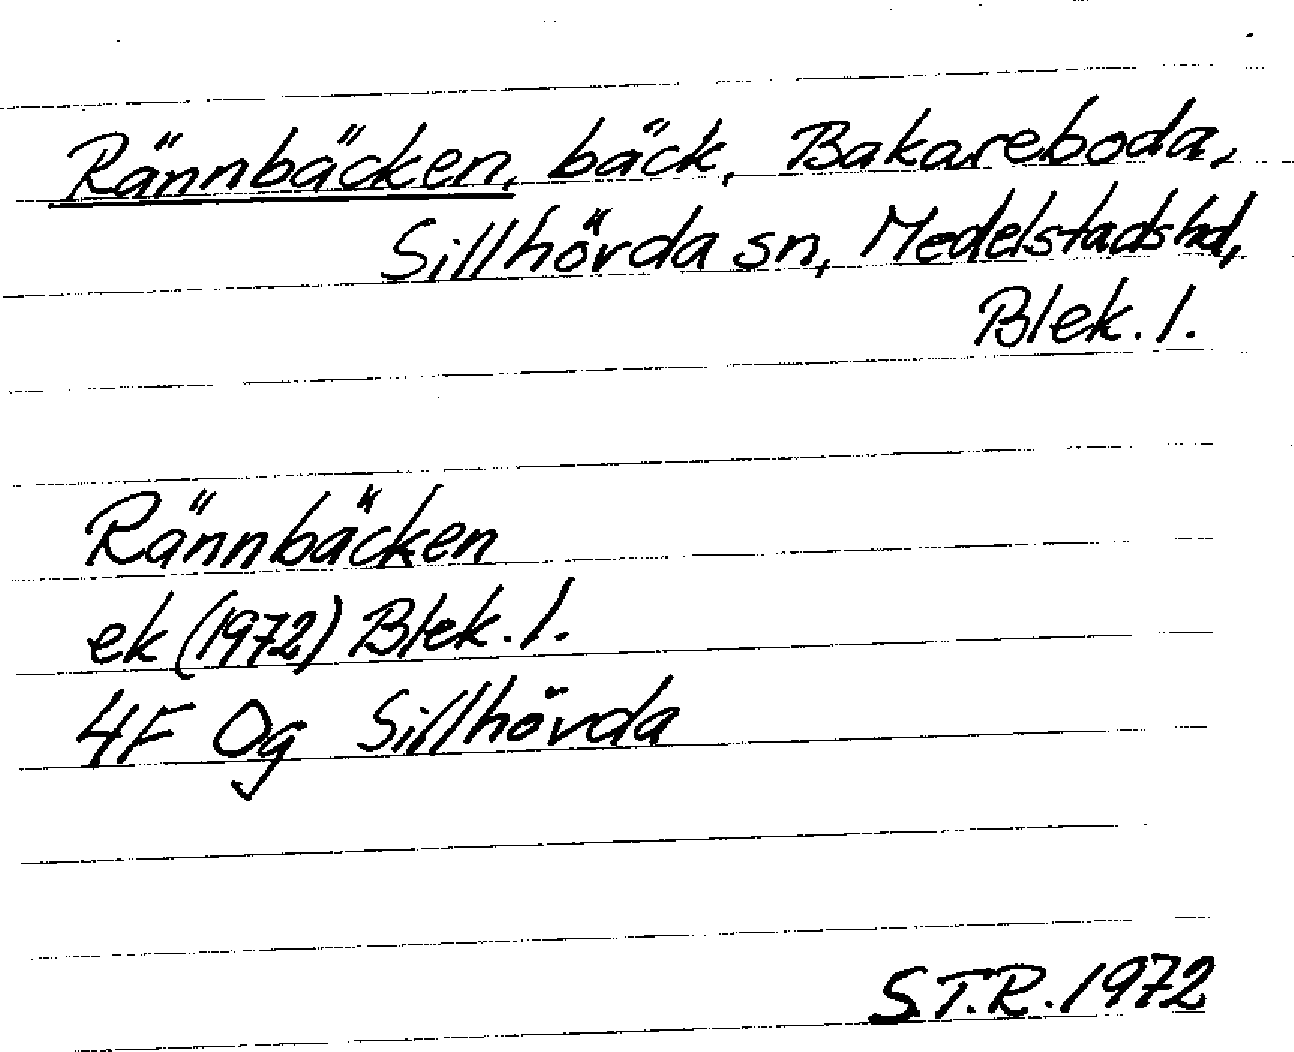 Rännbäcken, bäck, Bakareboda,
Sillhövda sn, Medelstads hd,
Blek. l.
Rännbäcken
ek (1972) Blek. l.
4F Og Sillhövda
S.T.R. 1972